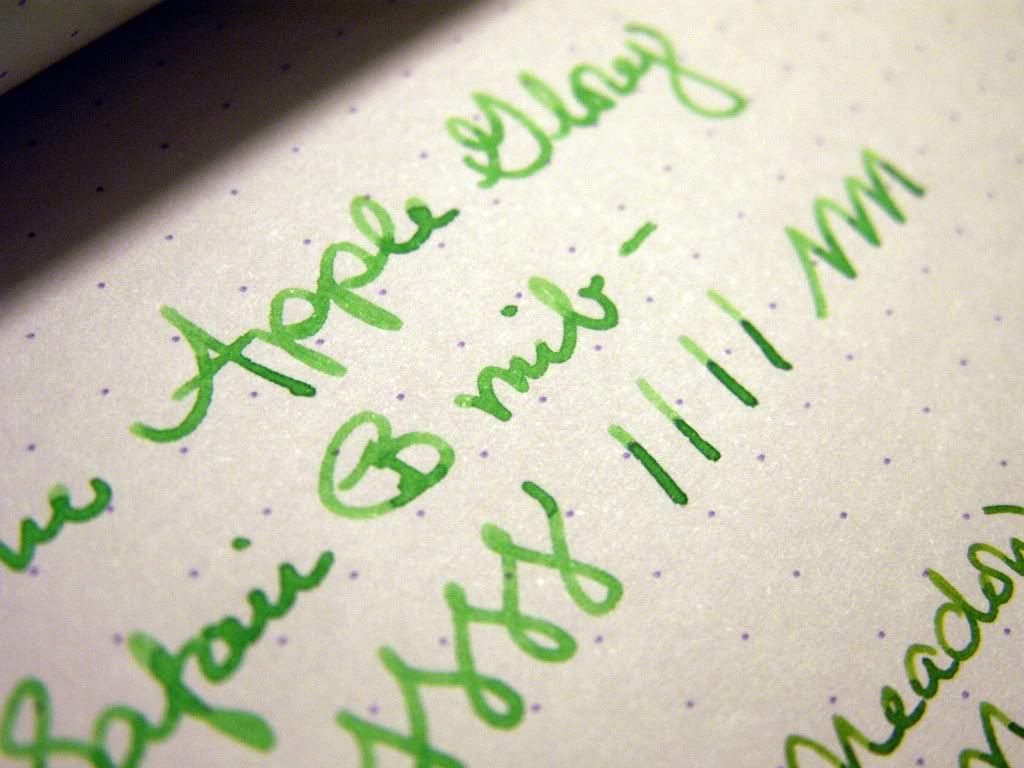 ne Apple Glory
Safari B nib -
Meadow